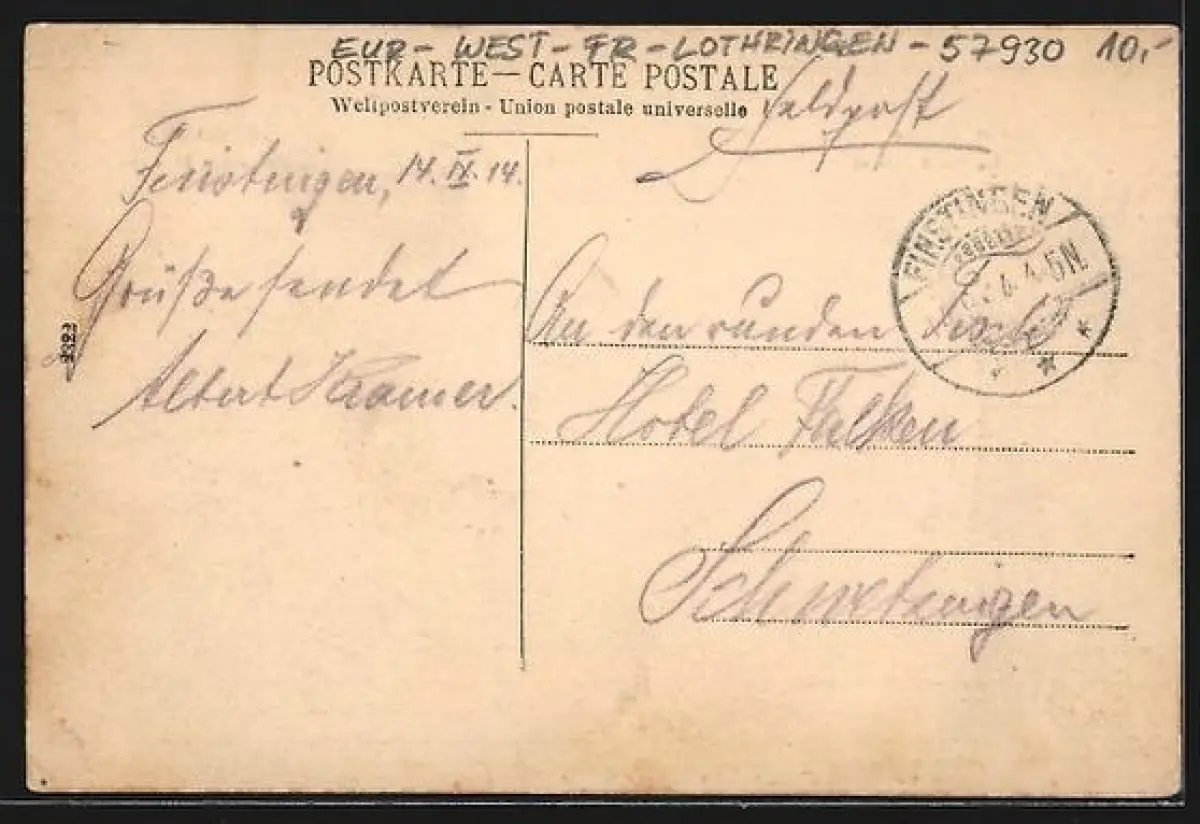 EUR - WEST - FR - LOTHRINGEN - 57930 10,-
POSTKARTE — CARTE POSTALE
Weltpostverein - Union postale universelle
Feldpost
Finstingen, 14. IX. 14.
Grüße sendet
Albert Kramer.
2222
FINSTINGEN
An den runden Tisch
Hotel Falken
Schwetzingen